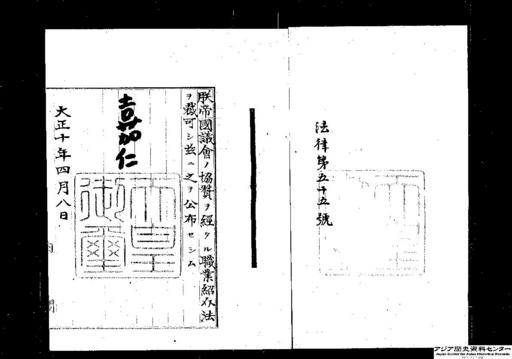 法律第五十五號
朕帝國議會ノ協贊ヲ經タル職業紹介法
ヲ裁可シ茲ニ之ヲ公布セシム
嘉仁
天皇
御璽
大正十年四月八日
内閣
アジア歴史資料センター
Japan Center for Asian Historical Records